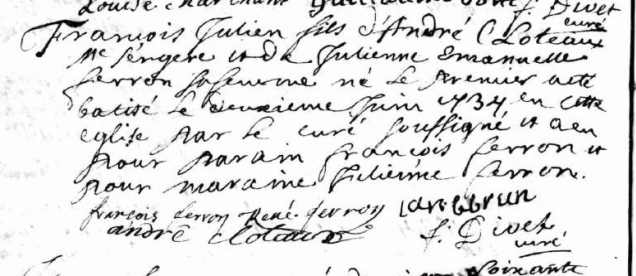 f. Divet
curé
François Julien fils d'André Cloteaux
Me sergere et de Julienne Emanuelle
Ferron sa femme né le premier ate
batisé le deuxieme Juin 1734 en cette
eglise par le curé soussigné et a eu
pour parain françois ferron et
pour maraine Julienne ferron.
françois ferron René ferron
andré Cloteaux f. Divet
curé